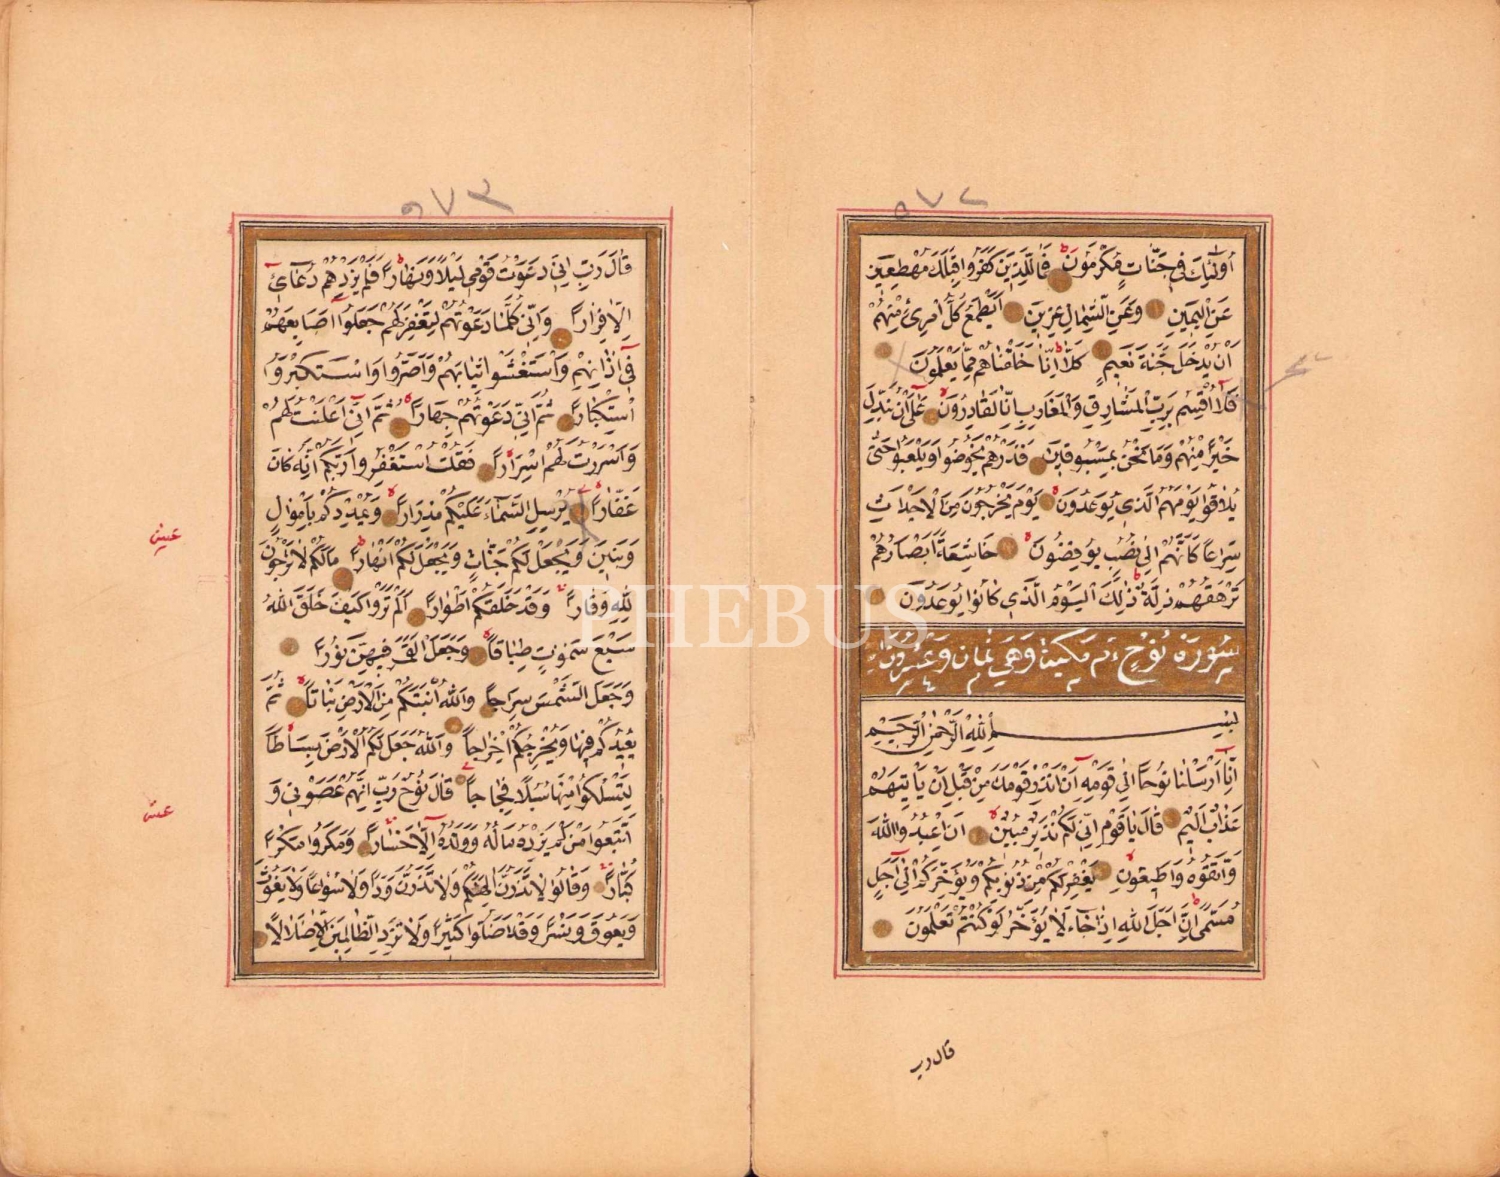 ٥٧٢
اُولٰئِكَ فِي جَنَّاتٍ مُكْرَمُونَ فَمَالِ الَّذِينَ كَفَرُوا قِبَلَكَ مُهْطِعِينَ
عَنِ الْيَمِينِ وَعَنِ الشِّمَالِ عِزِينَ اَيَطْمَعُ كُلُّ امْرِئٍ مِنْهُمْ
اَنْ يُدْخَلَ جَنَّةَ نَعِيمٍ كَلَّا اِنَّا خَلَقْنَاهُمْ مِمَّا يَعْلَمُونَ
فَلَا اُقْسِمُ بِرَبِّ الْمَشَارِقِ وَالْمَغَارِبِ اِنَّا لَقَادِرُونَ عَلٰى اَنْ نُبَدِّلَ
خَيْرًا مِنْهُمْ وَمَا نَحْنُ بِمَسْبُوقِينَ فَذَرْهُمْ يَخُوضُوا وَيَلْعَبُوا حَتّٰى
يُلَاقُوا يَوْمَهُمُ الَّذِي يُوعَدُونَ يَوْمَ يَخْرُجُونَ مِنَ الْاَجْدَاثِ
سِرَاعًا كَاَنَّهُمْ اِلٰى نُصُبٍ يُوفِضُونَ خَاشِعَةً اَبْصَارُهُمْ
تَرْهَقُهُمْ ذِلَّةٌ ذٰلِكَ الْيَوْمُ الَّذِي كَانُوا يُوعَدُونَ
سُورَةُ نُوحٍ عم مَكِّيَّةٌ وَهِيَ ثَمَانٌ وَعِشْرُونَ
بِسْمِ اللهِ الرَّحْمٰنِ الرَّحِيمِ
اِنَّا اَرْسَلْنَا نُوحًا اِلٰى قَوْمِهِ اَنْ اَنْذِرْ قَوْمَكَ مِنْ قَبْلِ اَنْ يَاْتِيَهُمْ
عَذَابٌ اَلِيمٌ قَالَ يَا قَوْمِ اِنِّي لَكُمْ نَذِيرٌ مُبِينٌ اَنِ اعْبُدُوا اللهَ
وَاتَّقُوهُ وَاَطِيعُونِ يَغْفِرْ لَكُمْ مِنْ ذُنُوبِكُمْ وَيُؤَخِّرْكُمْ اِلٰى اَجَلٍ
مُسَمًّى اِنَّ اَجَلَ اللهِ اِذَا جَاءَ لَا يُؤَخَّرُ لَوْ كُنْتُمْ تَعْلَمُونَ
قال رب
٥٧٣
قَالَ رَبِّ اِنِّي دَعَوْتُ قَوْمِي لَيْلًا وَنَهَارًا فَلَمْ يَزِدْهُمْ دُعَائِي
اِلَّا فِرَارًا وَاِنِّي كُلَّمَا دَعَوْتُهُمْ لِتَغْفِرَ لَهُمْ جَعَلُوا اَصَابِعَهُمْ
فِي اٰذَانِهِمْ وَاسْتَغْشَوْا ثِيَابَهُمْ وَاَصَرُّوا وَاسْتَكْبَرُوا
اسْتِكْبَارًا ثُمَّ اِنِّي دَعَوْتُهُمْ جِهَارًا ثُمَّ اِنِّي اَعْلَنْتُ لَهُمْ
وَاَسْرَرْتُ لَهُمْ اِسْرَارًا فَقُلْتُ اسْتَغْفِرُوا رَبَّكُمْ اِنَّهُ كَانَ
غَفَّارًا يُرْسِلِ السَّمَاءَ عَلَيْكُمْ مِدْرَارًا وَيُمْدِدْكُمْ بِاَمْوَالٍ
وَبَنِينَ وَيَجْعَلْ لَكُمْ جَنَّاتٍ وَيَجْعَلْ لَكُمْ اَنْهَارًا مَا لَكُمْ لَا تَرْجُونَ
لِلّٰهِ وَقَارًا وَقَدْ خَلَقَكُمْ اَطْوَارًا اَلَمْ تَرَوْا كَيْفَ خَلَقَ اللهُ
سَبْعَ سَمٰوَاتٍ طِبَاقًا وَجَعَلَ الْقَمَرَ فِيهِنَّ نُورًا
وَجَعَلَ الشَّمْسَ سِرَاجًا وَاللهُ اَنْبَتَكُمْ مِنَ الْاَرْضِ نَبَاتًا ثُمَّ
يُعِيدُكُمْ فِيهَا وَيُخْرِجُكُمْ اِخْرَاجًا وَاللهُ جَعَلَ لَكُمُ الْاَرْضَ بِسَاطًا
لِتَسْلُكُوا مِنْهَا سُبُلًا فِجَاجًا قَالَ نُوحٌ رَبِّ اِنَّهُمْ عَصَوْنِي وَ
اتَّبَعُوا مَنْ لَمْ يَزِدْهُ مَالُهُ وَوَلَدُهُ اِلَّا خَسَارًا وَمَكَرُوا مَكْرًا
كُبَّارًا وَقَالُوا لَا تَذَرُنَّ اٰلِهَتَكُمْ وَلَا تَذَرُنَّ وَدًّا وَلَا سُوَاعًا وَلَا يَغُوثَ
وَيَعُوقَ وَنَسْرًا وَقَدْ اَضَلُّوا كَثِيرًا وَلَا تَزِدِ الظَّالِمِينَ اِلَّا ضَلَالًا
عشر
عشر
PHEBUS